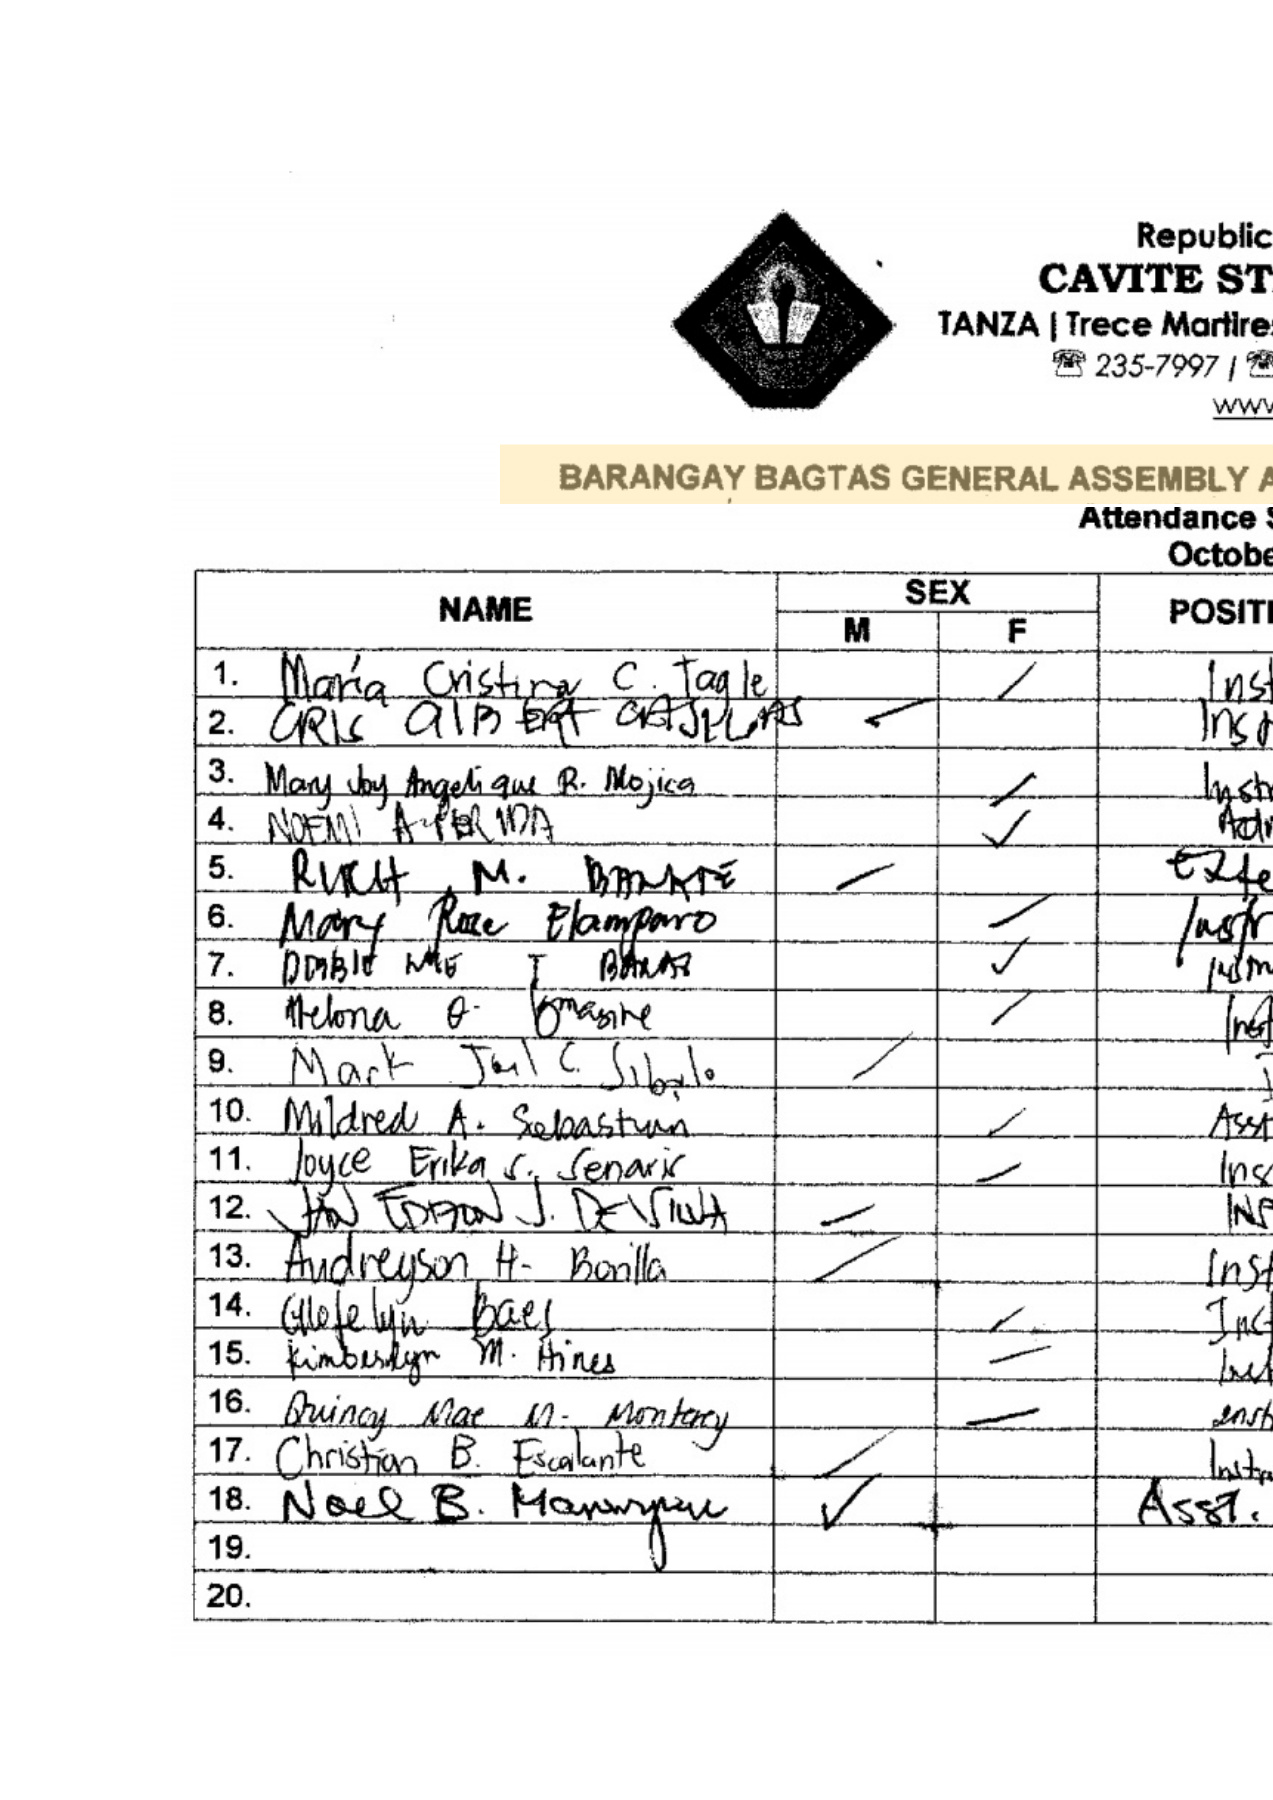 Republic
CAVITE ST
TANZA | Trece Martires
☏ 235-7997 | ☏
www
BARANGAY BAGTAS GENERAL ASSEMBLY A
Attendance S
Octobe
NAME SEX POSITI
M F
1. Maria Cristina C. Tagle Inst
2. CRIS AlBERT Inst
3. Mary Joy Angelique R. Mojica Instr
4. NOEMI A. PERIDA Adm
5. M. BANATE Exte
6. Mary Rose Elamparo Instr
7. DEBBIE MAE
8. Inst
9. Mark C. Sibulo I
10. Mildred A. Sebastian Asst
11. Joyce Erika S. Senaris Ins
12. JAN EDMON J. DE VILLA INS
13. Audreyson H. Bonilla Inst
14. Baes Inst
15. Kimberlyn M. Hines
16. Quincy Mae M. Monterey inst
17. Christian B. Escalante Instr
18. Noel B. Manarpiis Asst.
19.
20.